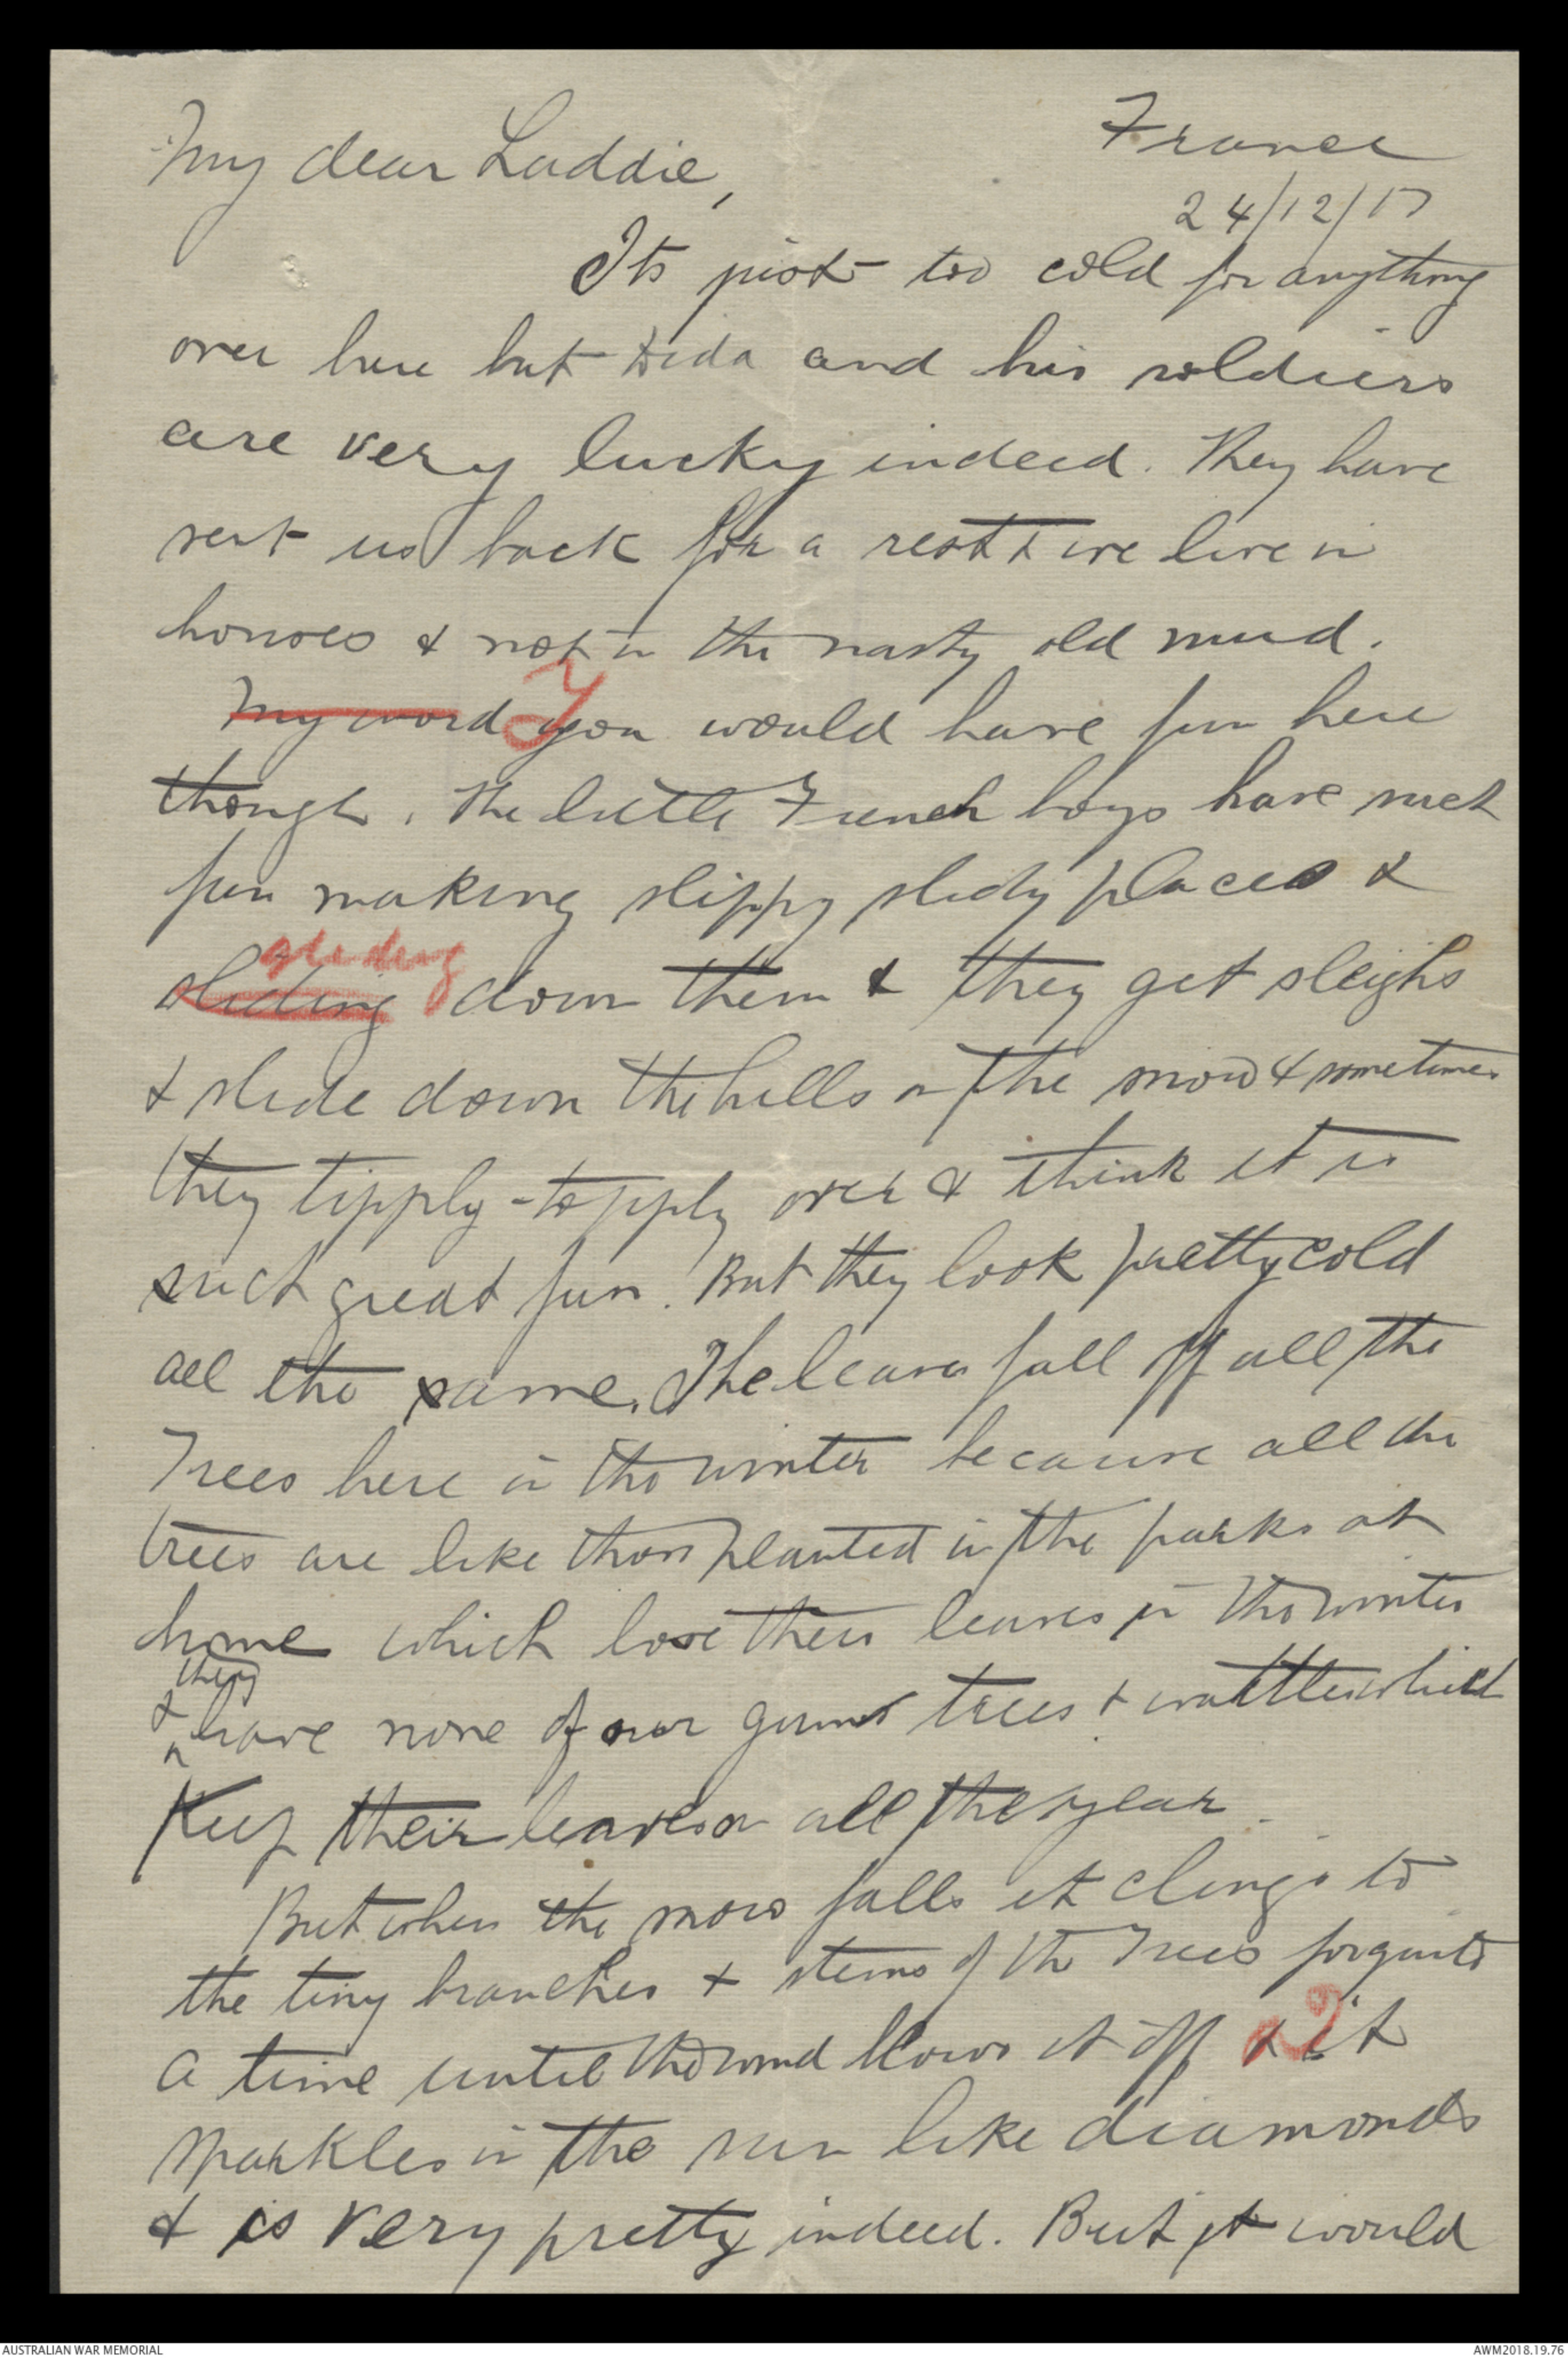 France
24/12/17
My dear Laddie,
Its just too cold for anything
over here but Dida and his soldiers
are very lucky indeed. They have
sent us back for a rest & we live in
houses & not in the nasty old mud.
My word Y you would have fun here
though. The little French boys have such
fun making slippy slidy places &
sliding
sliding down them & they get sleighs
& slide down the hills on the snow & sometimes
they tipply-topply over & think it is
such great fun. But they look pretty cold
all the same. The leaves fall off all the
Trees here in the winter because all the
trees are like those planted in the parks at
home which lose their leaves in the winter
& they
have none of our gum trees & wattle which
Keep their leaves on all the year.
But when the snow falls it clings to
the tiny branches & stems of the Trees for quite
a time until the wind blows it off & it
sparkles in the sun like diamonds
& is very pretty indeed. But it would
AUSTRALIAN WAR MEMORIAL
AWM2018.19.76